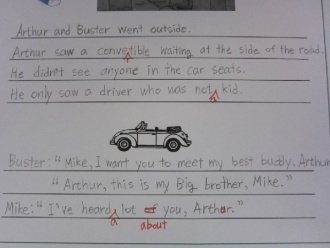 Arthur and Buster went outside.
Arthur saw a convertible waiting at the side of the road.
He didn't see anyone in the car seats.
He only saw a driver who was not a kid.
Buster: "Mike, I want you to meet my best buddy, Arthur
"Arthur, this is my Big brother, Mike."
Mike: "I've heard a lot of you, Arthur."
about